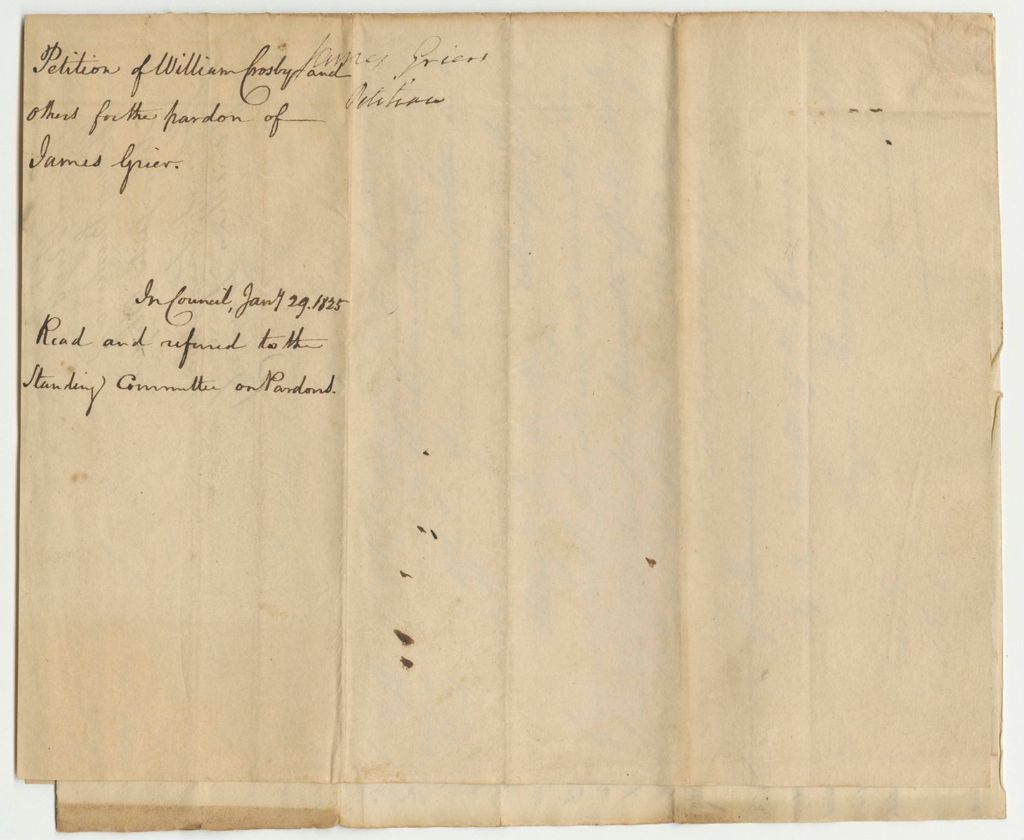 Petition of William Crosby and
others for the pardon of
James Grier.
James Griers
Petition
In Council, Jany 29. 1825
Read and referred to the
Standing Committee on Pardons.